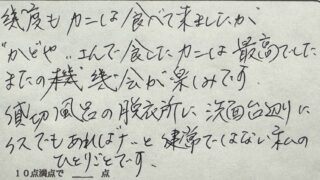 幾度もカニは食べて来ましたが
"かどや"さんで食したカニは最高でした
またの機幾会が楽しみです。
貸切風呂の脱衣所に洗面台辺りに
イスでもあればナ〜と健常ではない私の
ひとりごとです。
10点満点で 点